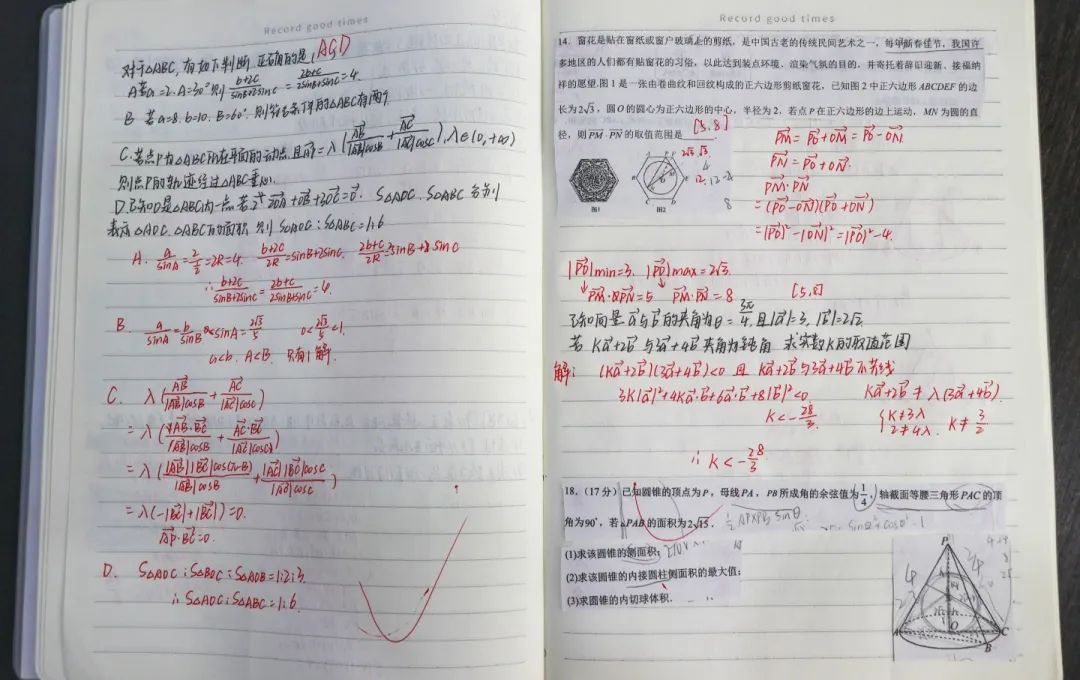 Record good times
对于△ABC,有如下判断,正确的是
A 若a=2. A=30° 则 b+2c/sinB+2sinC = 2b+c/2sinB+sinC = 4.
B 若a=8. b=10. B=60°. 则符合条件的△ABC有两个
C.若点P为△ABC所在平面的动点,且AP=λ(AB/|AB|cosB + AC/|AC|cosC), λ∈(0,+∞)
则点P的轨迹经过△ABC重心.
D.已知O是△ABC内一点,若 2OA+OB+3OC=0. S△AOC、S△ABC 分别
表示△AOC、△ABC的面积,则 S△AOC:S△ABC=1:6
A. a/sinA = 2/½ = 2R = 4. b+2c/2R = sinB+2sinC. 2b+c/2R = 2sinB+sinC
∴ b+2c/sinB+2sinC = 2b+c/2sinB+sinC = 4.
B. a/sinA = b/sinB sinA = 2√3/5 0<2√3/5<1.
a<b. A<B. 只有1解.
C. λ(AB/|AB|cosB + AC/|AC|cosC)
= λ(AB·BC/|AB|cosB + AC·BC/|AC|cosC)
= λ(|AB||BC|cos(π-B)/|AB|cosB + |AC||BC|cosC/|AC|cosC)
= λ(-|BC|+|BC|)=0.
AP·BC=0.
D. S△AOC:S△BOC:S△AOB=1:2:3
∴ S△AOC:S△ABC=1:6
Record good times
14. 窗花是贴在窗纸或窗户玻璃上的剪纸,是中国古老的传统民间艺术之一,每年新春佳节,我国许
多地区的人们都有贴窗花的习俗,以此达到装点环境、渲染气氛的目的,并寄托着辞旧迎新、接福纳
祥的愿望.图1是一张由卷曲纹和回纹构成的正六边形剪纸窗花,已知图2中正六边形ABCDEF的边
长为2√3,圆O的圆心为正六边形的中心,半径为2,若点P在正六边形的边上运动,MN为圆的直
径,则PM·PN的取值范围是 [5,8]
图1
图2
PM=PO+OM=PO-ON.
PN=PO+ON.
PM·PN
=(PO-ON)(PO+ON)
=|PO|²-|ON|²=|PO|²-4.
|PO|min=3. |PO|max=2√3.
PM·PN=5 PM·PN=8 [5,8]
已知向量a与b的夹角为θ=3π/4,且|a|=3, |b|=2√2
若 ka+2b 与3a+4b 夹角为钝角 求实数k的取值范围
解: (ka+2b)(3a+4b)<0 且 ka+2b与3a+4b不共线
3k|a|²+4ka·b+6a·b+8|b|²<0 ka+2b≠λ(3a+4b).
k<-28/3. {k≠3λ 2≠4λ. k≠3/2
∴ k<-28/3
18. (17分)已知圆锥的顶点为P,母线PA,PB所成角的余弦值为1/4,轴截面等腰三角形PAC的顶
角为90°,若△PAB的面积为2√15.
(1)求该圆锥的侧面积;
(2)求该圆锥的内接圆柱侧面积的最大值;
(3)求圆锥的内切球体积.
P
A
O
C
B